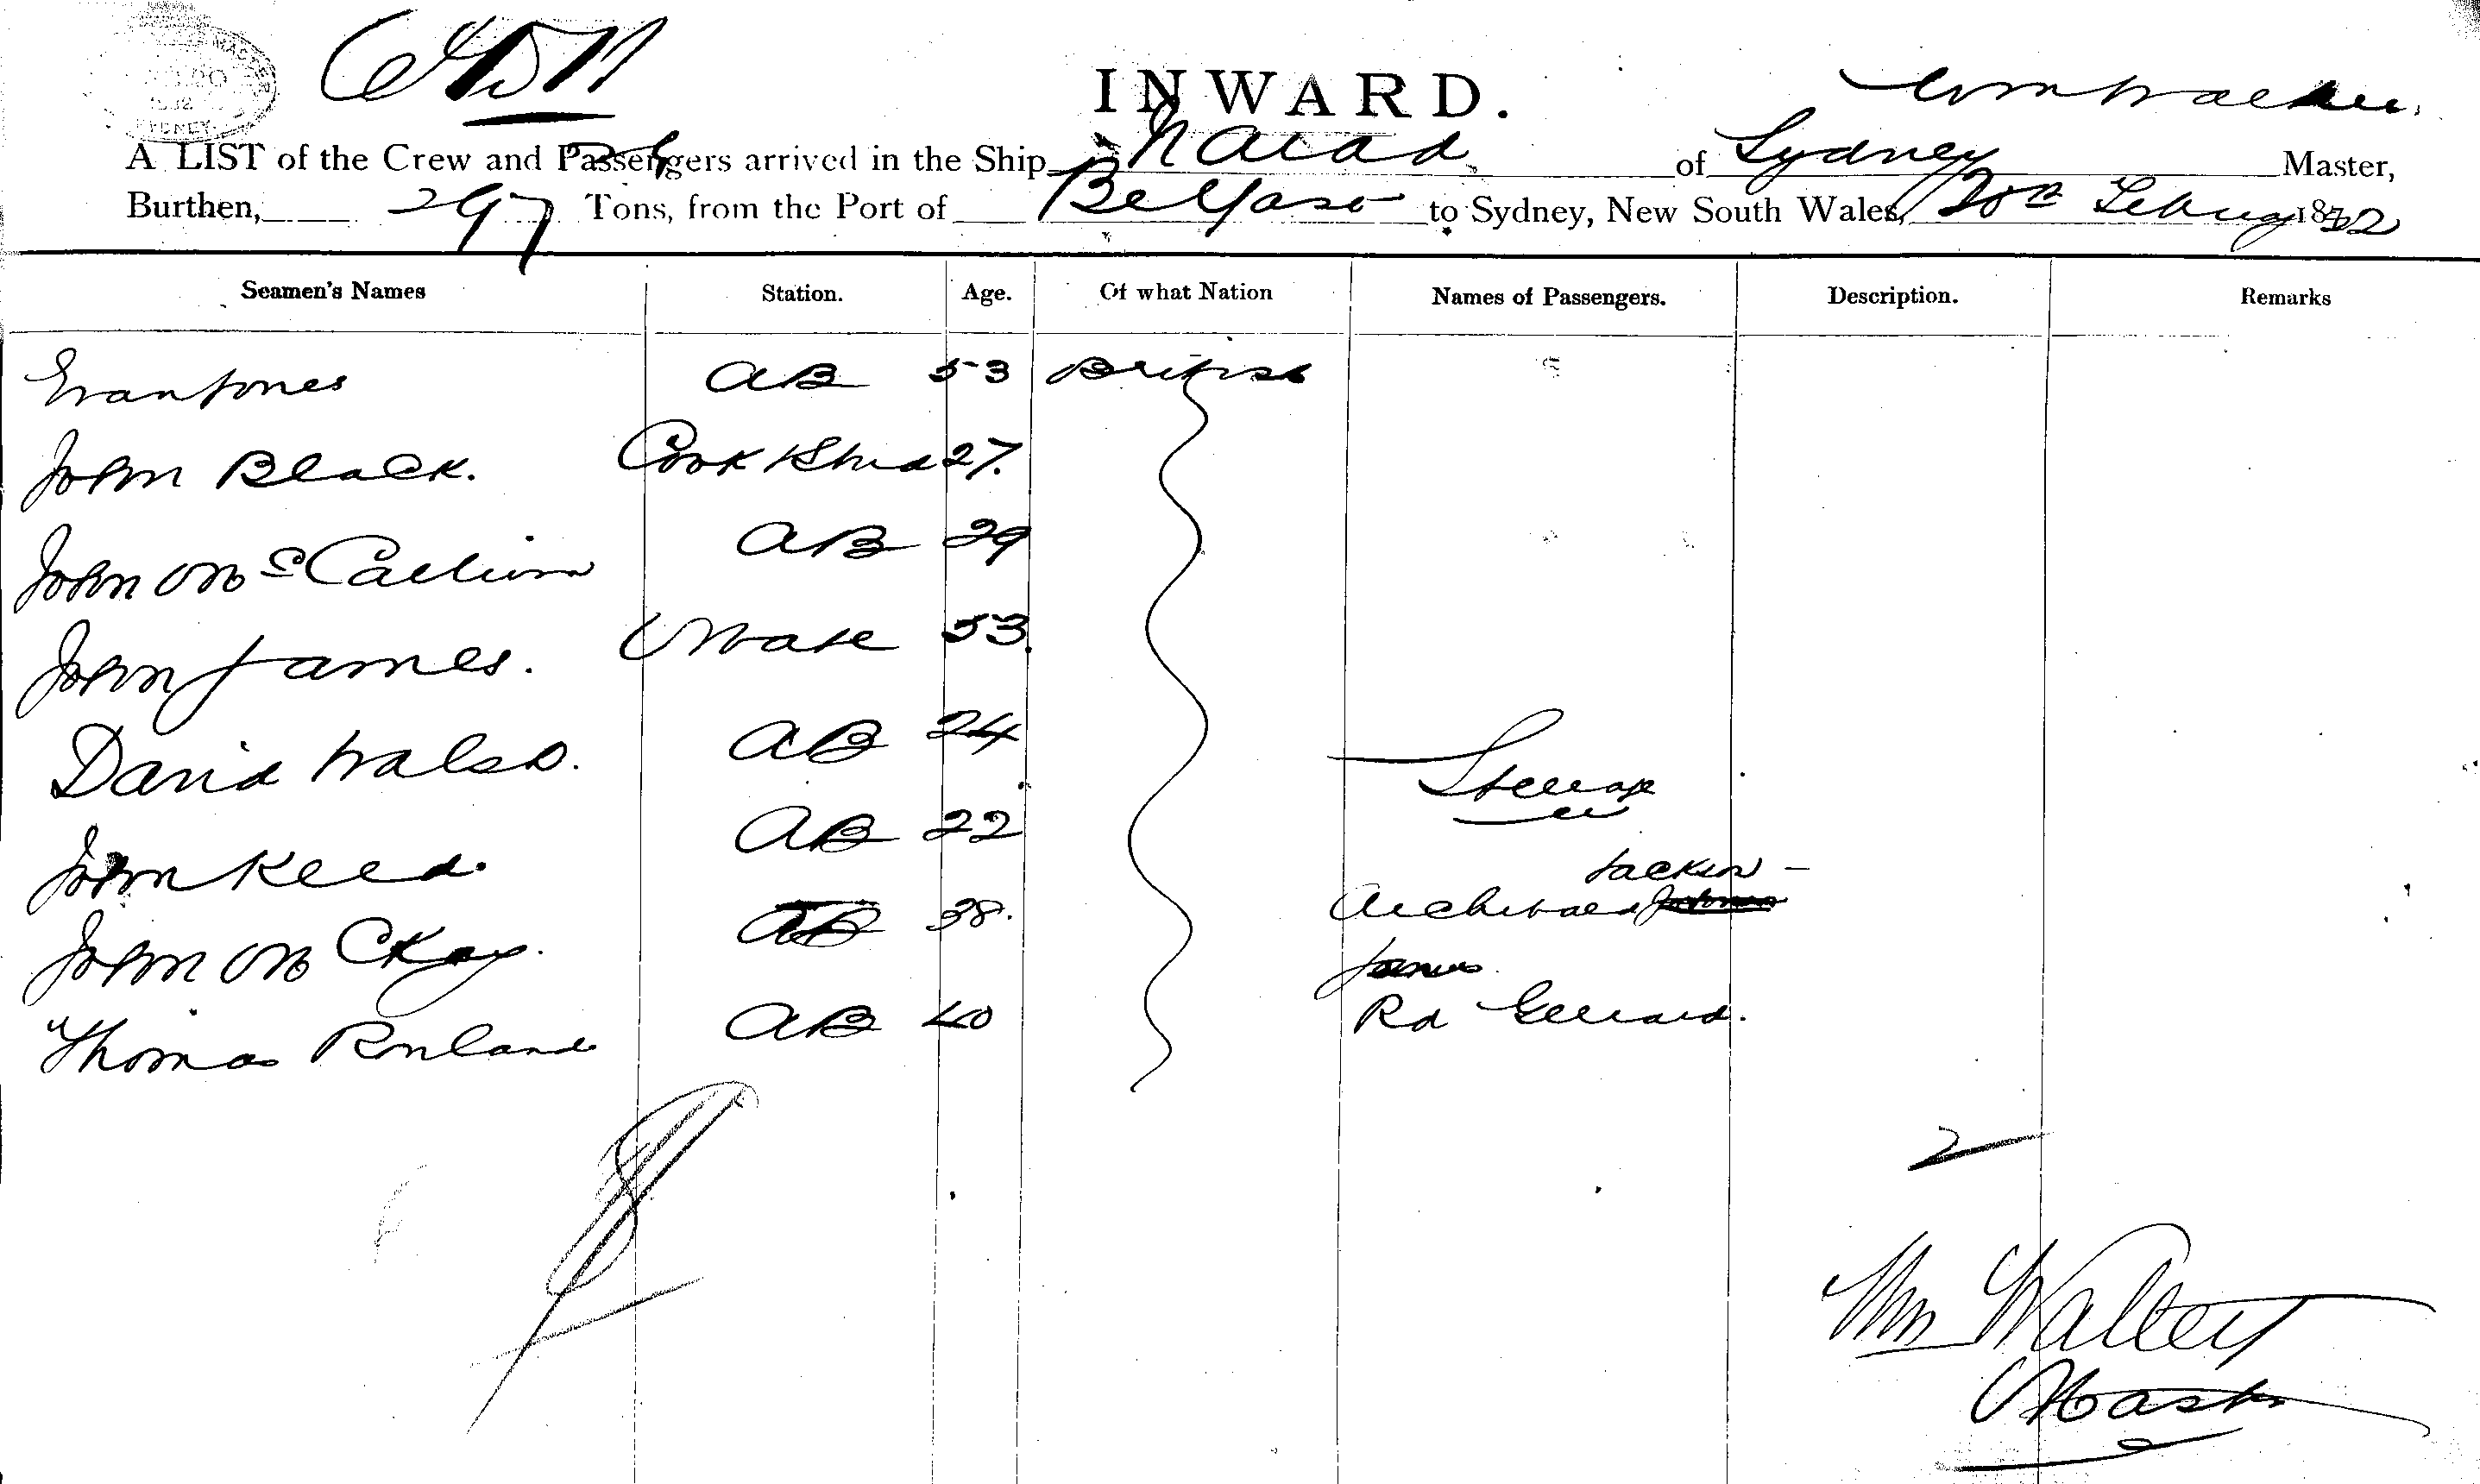 INWARD.
Wm Walter
A LIST of the Crew and Passengers arrived in the Ship Naiad of Sydney Master,
Burthen, 297 Tons, from the Port of Belfast to Sydney, New South Wales, 20th Febuary 1882
Seamen's Names Station. Age. Of what Nation Names of Passengers. Description. Remarks
Evan Jones AB 53 British
John Black. Cook & Stwd 27.
John McCallum AB 29
John James. Mate 53
David Walsh. AB 24
Steerage
John Reed. AB 22
Jackson -
John McKay. AB 38. Archibald
James
Thomas Rowland AB 40 Rd Gerrard.
2
Wm Walter
Master